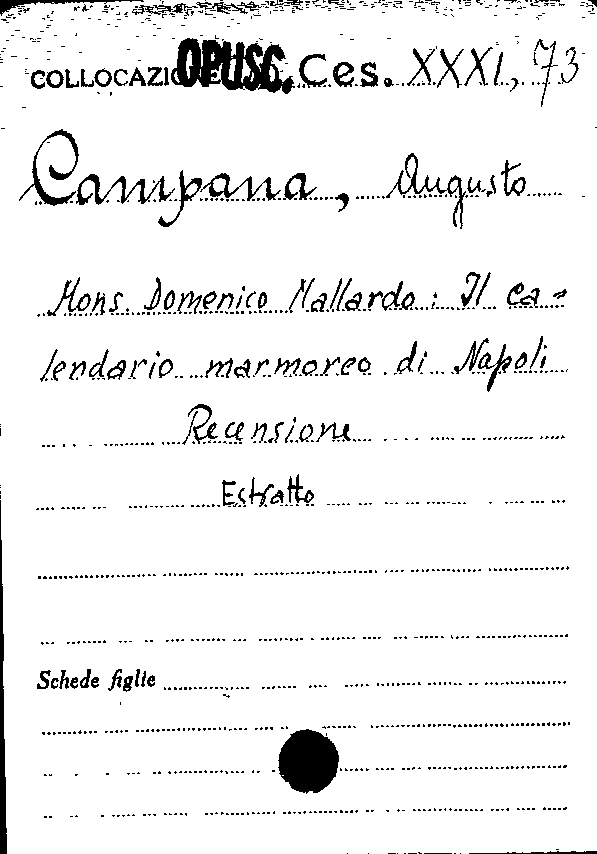 COLLOCAZIONE OPUSC. Ces. XXXI, 73
Campana, Augusto
Mons. Domenico Mallardo: Il ca=
lendario marmoreo di Napoli
Recensione
Estratto
Schede figlie